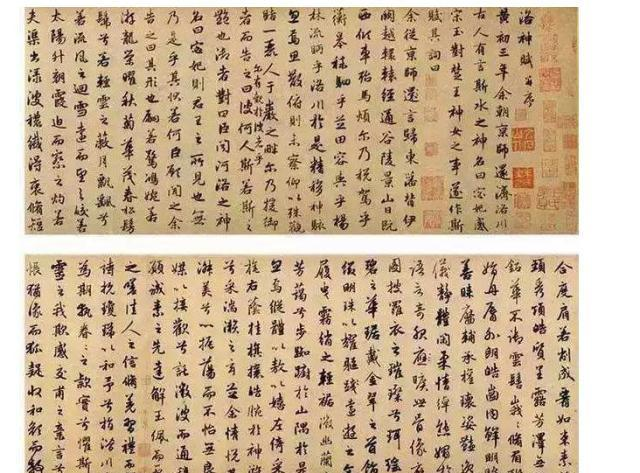 洛神賦并序
黄初三年余朝京師還濟洛川
古人有言斯水之神名曰宓妃感
宋玉對楚王神女之事遂作斯
賦其詞曰
余從京師還言歸東藩背伊
闕越轘轅經通谷陵景山日既
西傾車殆馬煩尔乃税駕乎
蘅皋秣駟乎芝田容與乎楊
林流眄乎洛川於是精移神駭
忽焉思散俯則未察仰以殊觀
睹一麗人于巖之畔尔乃援御
者而告之曰尔有覿於彼者乎彼何人斯若斯之
豔也御者對曰臣聞河洛之神
名曰宓妃則君王之所見也無
乃是乎其狀若何臣願聞之余
告之曰其形也翩若驚鴻婉若
游龍榮曜秋菊華茂春松髣
髴兮若輕雲之蔽月飄飄兮
若流風之迴雪遠而望之皎若
太陽升朝霞迫而察之灼若
夫渠出淥波穠纖得衷脩短
合度肩若削成署如束素
頸秀項皓質呈露芳澤
鉛華不御雲髻峩峩脩眉
娟丹脣外朗皓齒内鮮明
善睞靨輔承權瓌姿豔
儀靜體閑柔情綽態媚
語言奇服曠世骨像應
圖披羅衣之璀璨兮珥
碧之華琚戴金翠之首
綴明珠以耀軀踐遠遊之
履曳霧綃之輕裾微幽蘭
芳藹兮步踟躕於山隅於
忽焉縱體以敖以嬉左倚采
旄右蔭桂旗攘皓腕於神
兮采湍瀨之玄芝余情悅其
淑美兮心振蕩而不怡無
媒以接歡兮託微波而通
願誠素之先達解玉佩而
之嗟佳人之信脩羌習禮
詩抗瓊珶以和予兮指潛川
為期執眷眷之款實兮懼斯
靈之我欺感交甫之棄言兮
悵猶豫而狐疑收和顏而